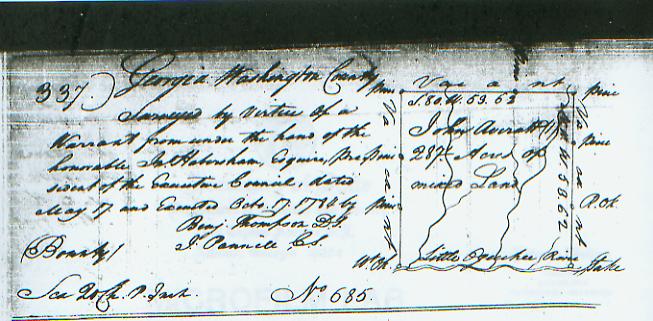 337) Georgia Washington County
Surveyed by Virtue of a
Warrant from under the hand of the
honorable Jas Habersham, Esquire, Pre
sident of the Executive Council, dated
May 17 and Executed Octo. 17. 1784 by
Benj. Thompson D.S.
J. Pannill C.S.
(Bounty)
Sca 20 Ch. P. Inch.
No 685.
pine Vacant pine
S. 80. W. 53. 62
John Averett
287 Acres of
mixed Land
Vacant
pine
pine
pine
W. 53. 62
Vacant
R.Ok.
W.Ok.
Little Ogeechee River
Stake